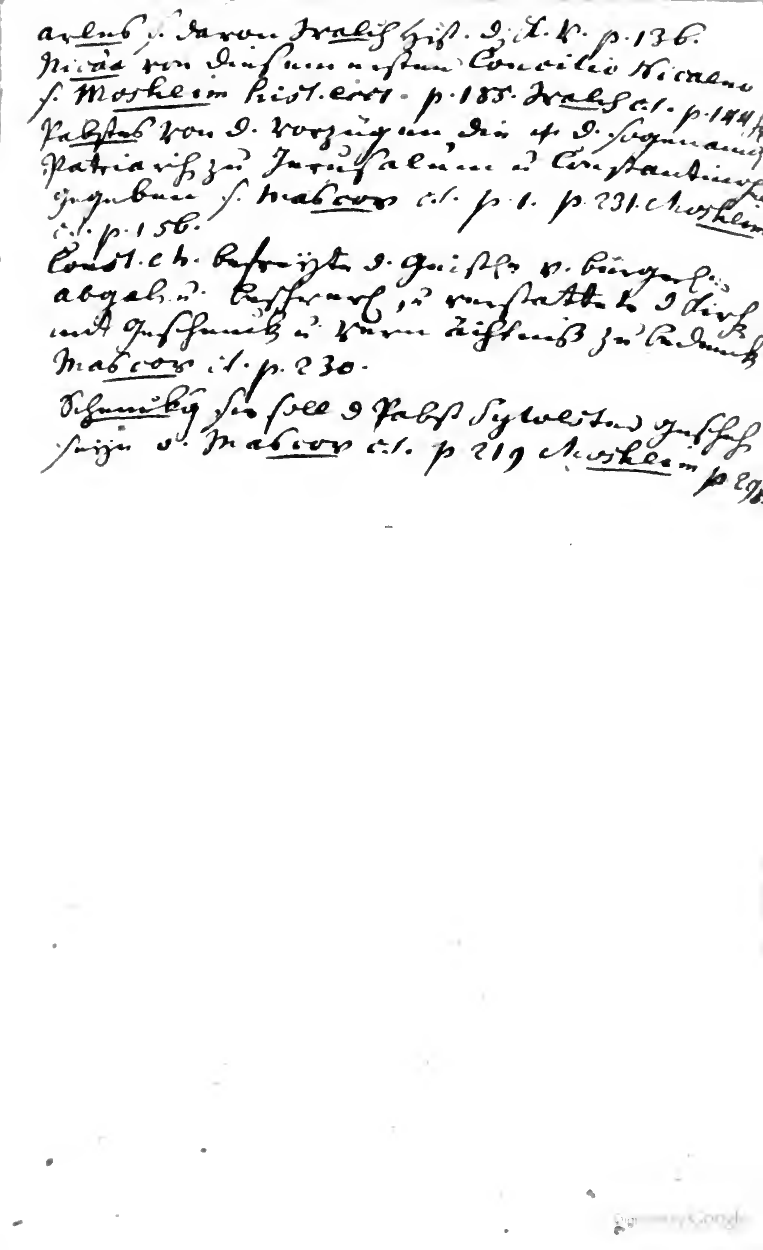 arles s. davon Walch Hist. d. K. V. p. 136.
Nicäa von diesem ersten Concilio Nicaeno
s. Mosheim hist. eccl. p. 185. Walch c.l. p. 144
Pabstes von d. Vorzügen, die er d. sogenannt
Patriarch zu Jerusalem u Constantinop
gegeben s. Mascov c.l. p. 1. p. 231. Mosheim
c.l. p. 156.
Const. M. befreyte d. Geistl. v. bürgerl.
abgab. u. beschwerl, u verstattete d Kirch
mit Geschenk u Vermächtniß zu bedenk
Mascov cl. p. 230.
Schenkūg sie soll d Pabst Sylvester gescheh
seyn v. Mascov c.l. p 219 Mosheim p